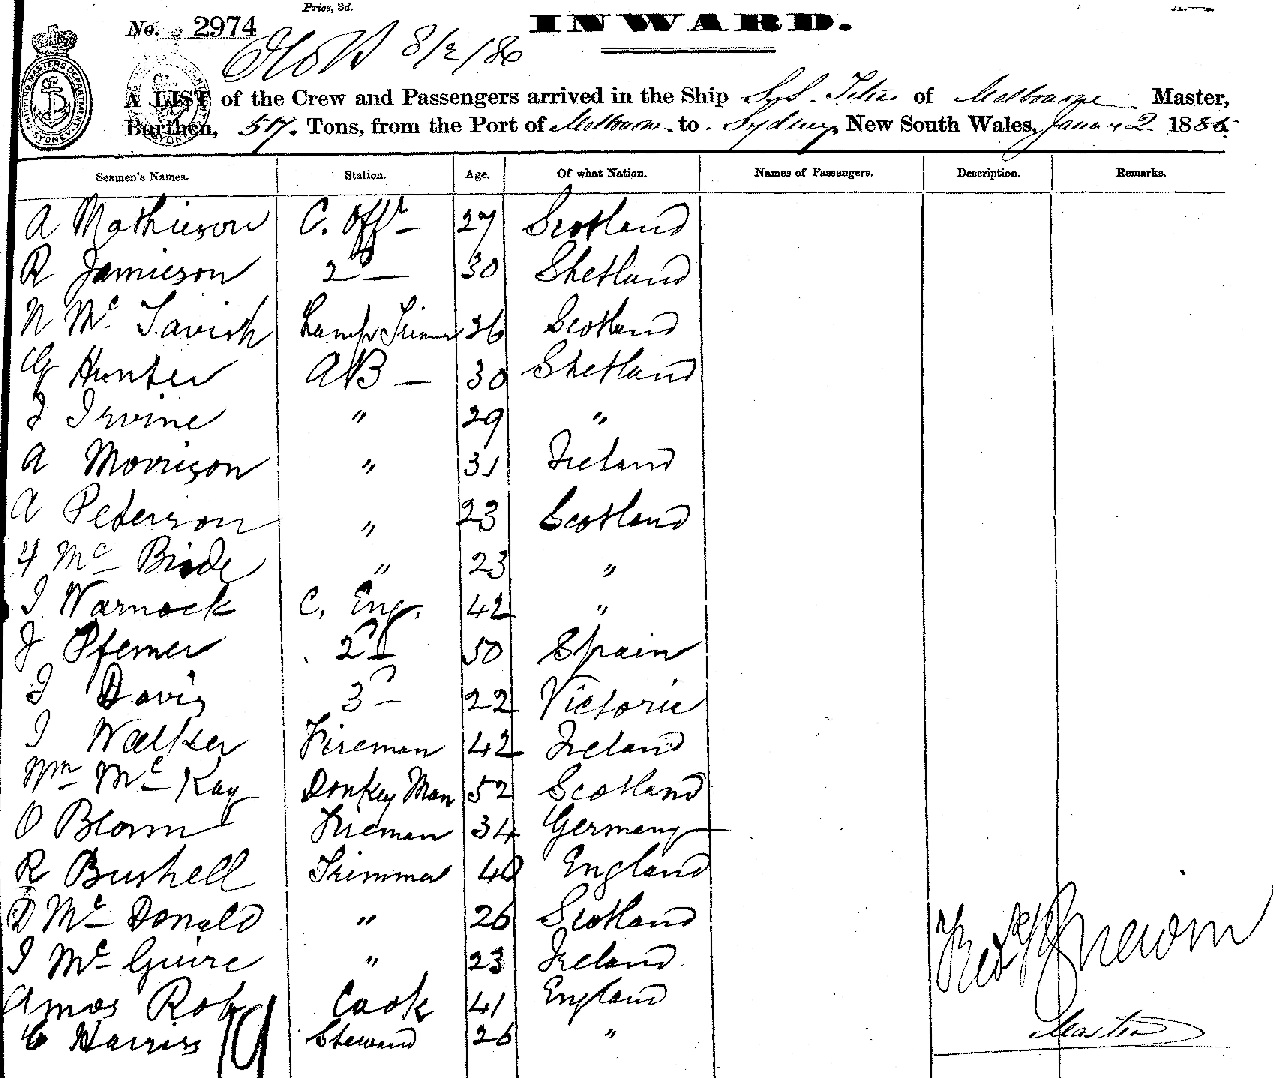 Price, 3d.
No. 2974
INWARD.
8/2/86
A LIST of the Crew and Passengers arrived in the Ship S.S. of Melbourne Master,
Burthen, 517 Tons, from the Port of Melbourne to Sydney, New South Wales, 2 188
Seamen's Names. Station. Age. Of what Nation. Names of Passengers. Description. Remarks.
A Mathieson C. Offr 27 Scotland
R Jamieson 2d 30 Shetland
N Mc Tavish Lamp Trimmer 36 Scotland
G Hunter AB 30 Shetland
Irvine " 29 "
A Morrison " 31 Ireland
A Peterson " 23 Scotland
Mc Bride " 23 "
J Warnock C. Eng. 42 "
J 2d 50 Spain
J Davis 3d 22 Victoria
J Walker Fireman 42 Ireland
Wm McKay Donkey Man 52 Scotland
O Blom Fireman 34 Germany
R Bushell Trimmer 40 England
D McDonald " 26 Scotland
J McGuire " 23 Ireland
Amos Rob Cook 41 England
C Harris Steward 26 "
19
Master